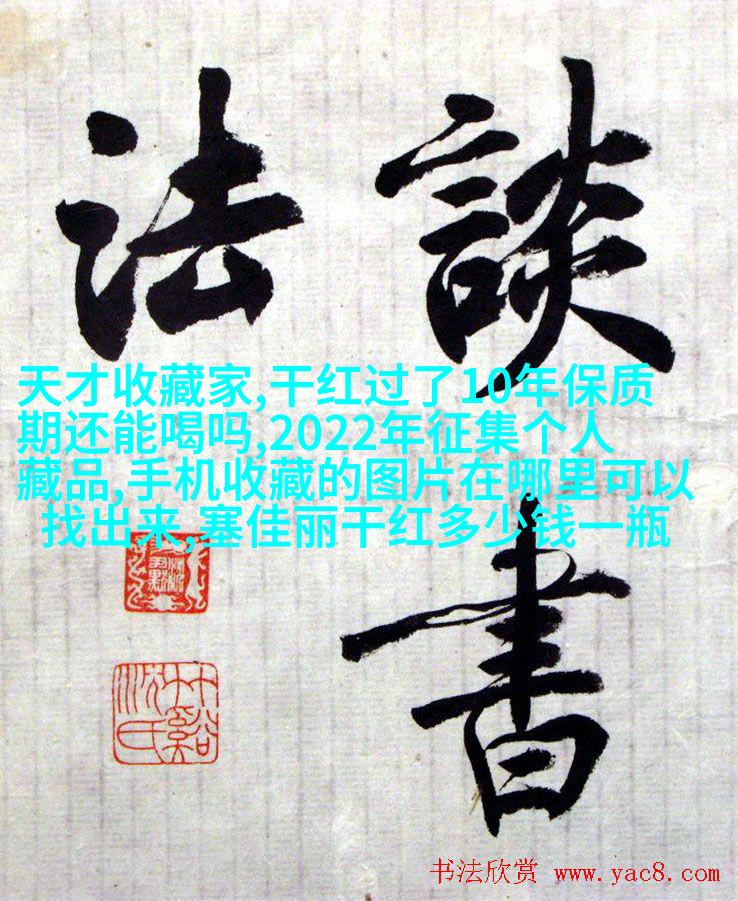 談書
法
天才收藏家,干红过了10年保质
期还能喝吗,2022年征集个人
藏品,手机收藏的图片在哪里可以
找出来,塞佳丽干红多少钱一瓶
书法欣赏 www.yac8.com